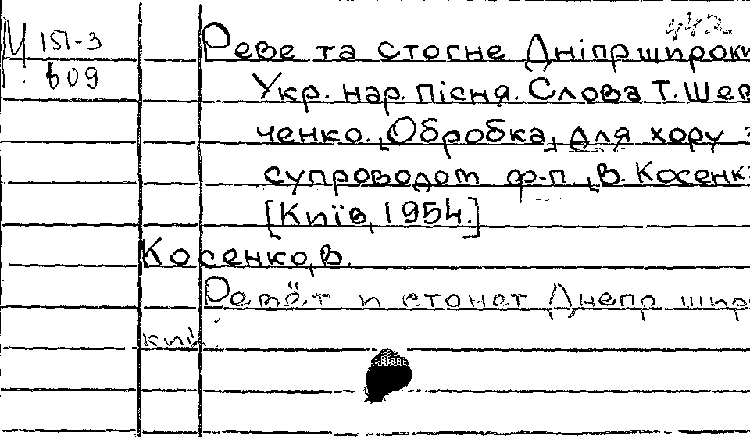 М 151-3
609
442.
Реве та стогне Дніпр широки
Укр. нар. пісня. Слова Т. Шев
ченко. [Обробка] для хору з
супроводом ф-п. [В. Косенк
[Київ, 1954.]
Косенко, В.
Ревёт и стонет Днепр широ
кий.